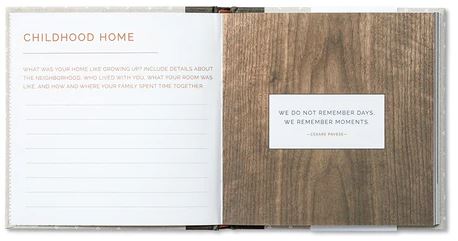 CHILDHOOD HOME
WHAT WAS YOUR HOME LIKE GROWING UP? INCLUDE DETAILS ABOUT
THE NEIGHBORHOOD, WHO LIVED WITH YOU, WHAT YOUR ROOM WAS
LIKE, AND HOW AND WHERE YOUR FAMILY SPENT TIME TOGETHER.
WE DO NOT REMEMBER DAYS,
WE REMEMBER MOMENTS.
—CESARE PAVESE—